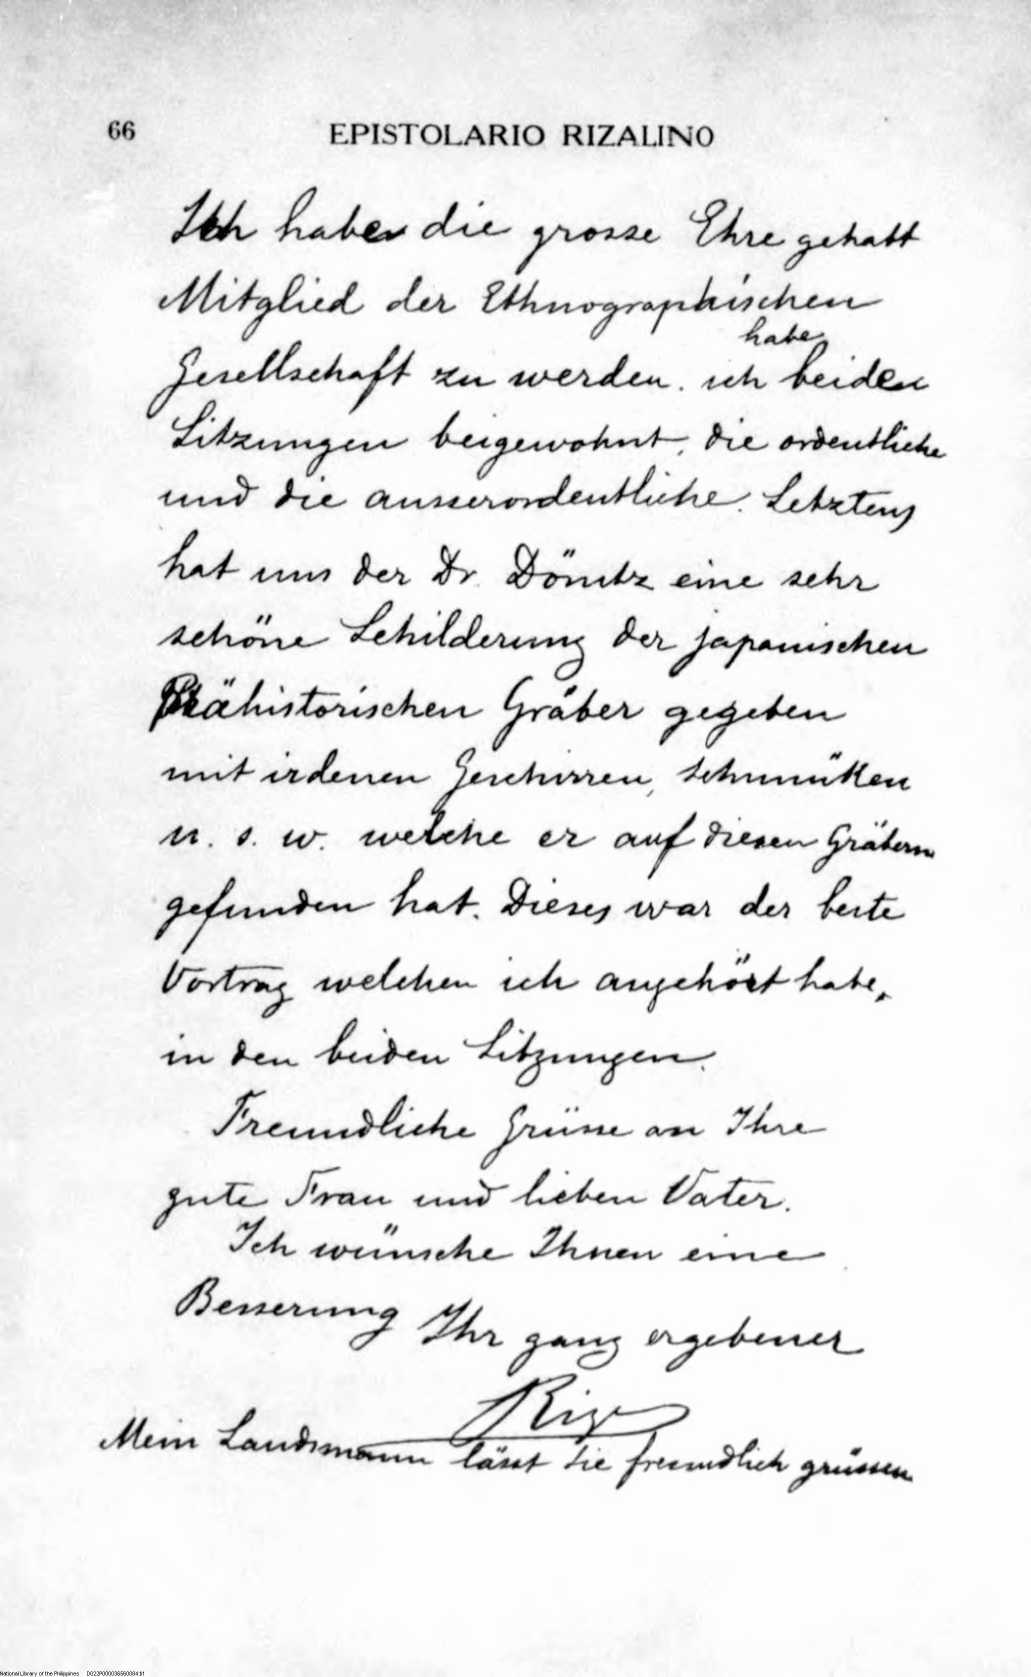 66
EPISTOLARIO RIZALINO
Ich habe die grosse Ehre gehabt
Mitglied der Ethnographischen
habe
Gesellschaft zu werden. ich beiden
Sitzungen beigewohnt, die ordentliche
und die ausserordentliche. Letztens
hat uns der Dr. Dönitz eine sehr
schöne Schilderung der japanischen
Prähistorischen Gräber gegeben
mit irdenen Geschirren, Schmüken
u. s. w. welche er auf diesen Gräbern
gefunden hat. Dieses war der beste
Vortrag welchen ich angehört habe,
in den beiden Sitzungen.
Freundliche Grüsse an Ihre
gute Frau und lieben Vater.
Ich wünsche Ihnen eine
Besserung Ihr ganz ergebener
Rizal
Mein Landsmann lässt Sie freundlich grüssen
National Library of the Philippines